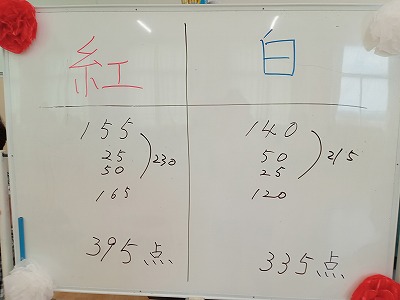 紅 白
155 140
25 50
50 25
230 215
165 120
395点 335点